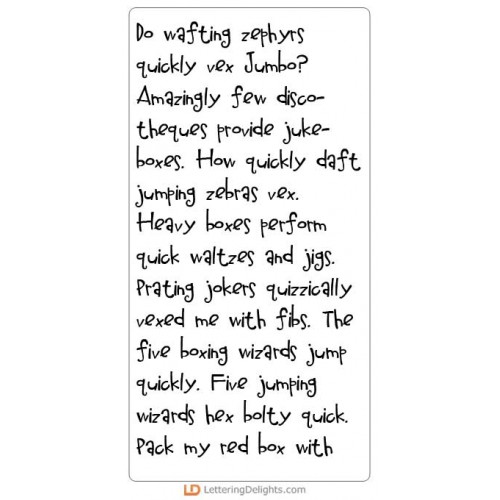 Do wafting zephyrs
quickly vex Jumbo?
Amazingly few disco-
theques provide juke-
boxes. How quickly daft
jumping zebras vex.
Heavy boxes perform
quick waltzes and jigs.
Prating jokers quizzically
vexed me with fibs. The
five boxing wizards jump
quickly. Five jumping
wizards hex bolty quick.
Pack my red box with
LD LetteringDelights.com